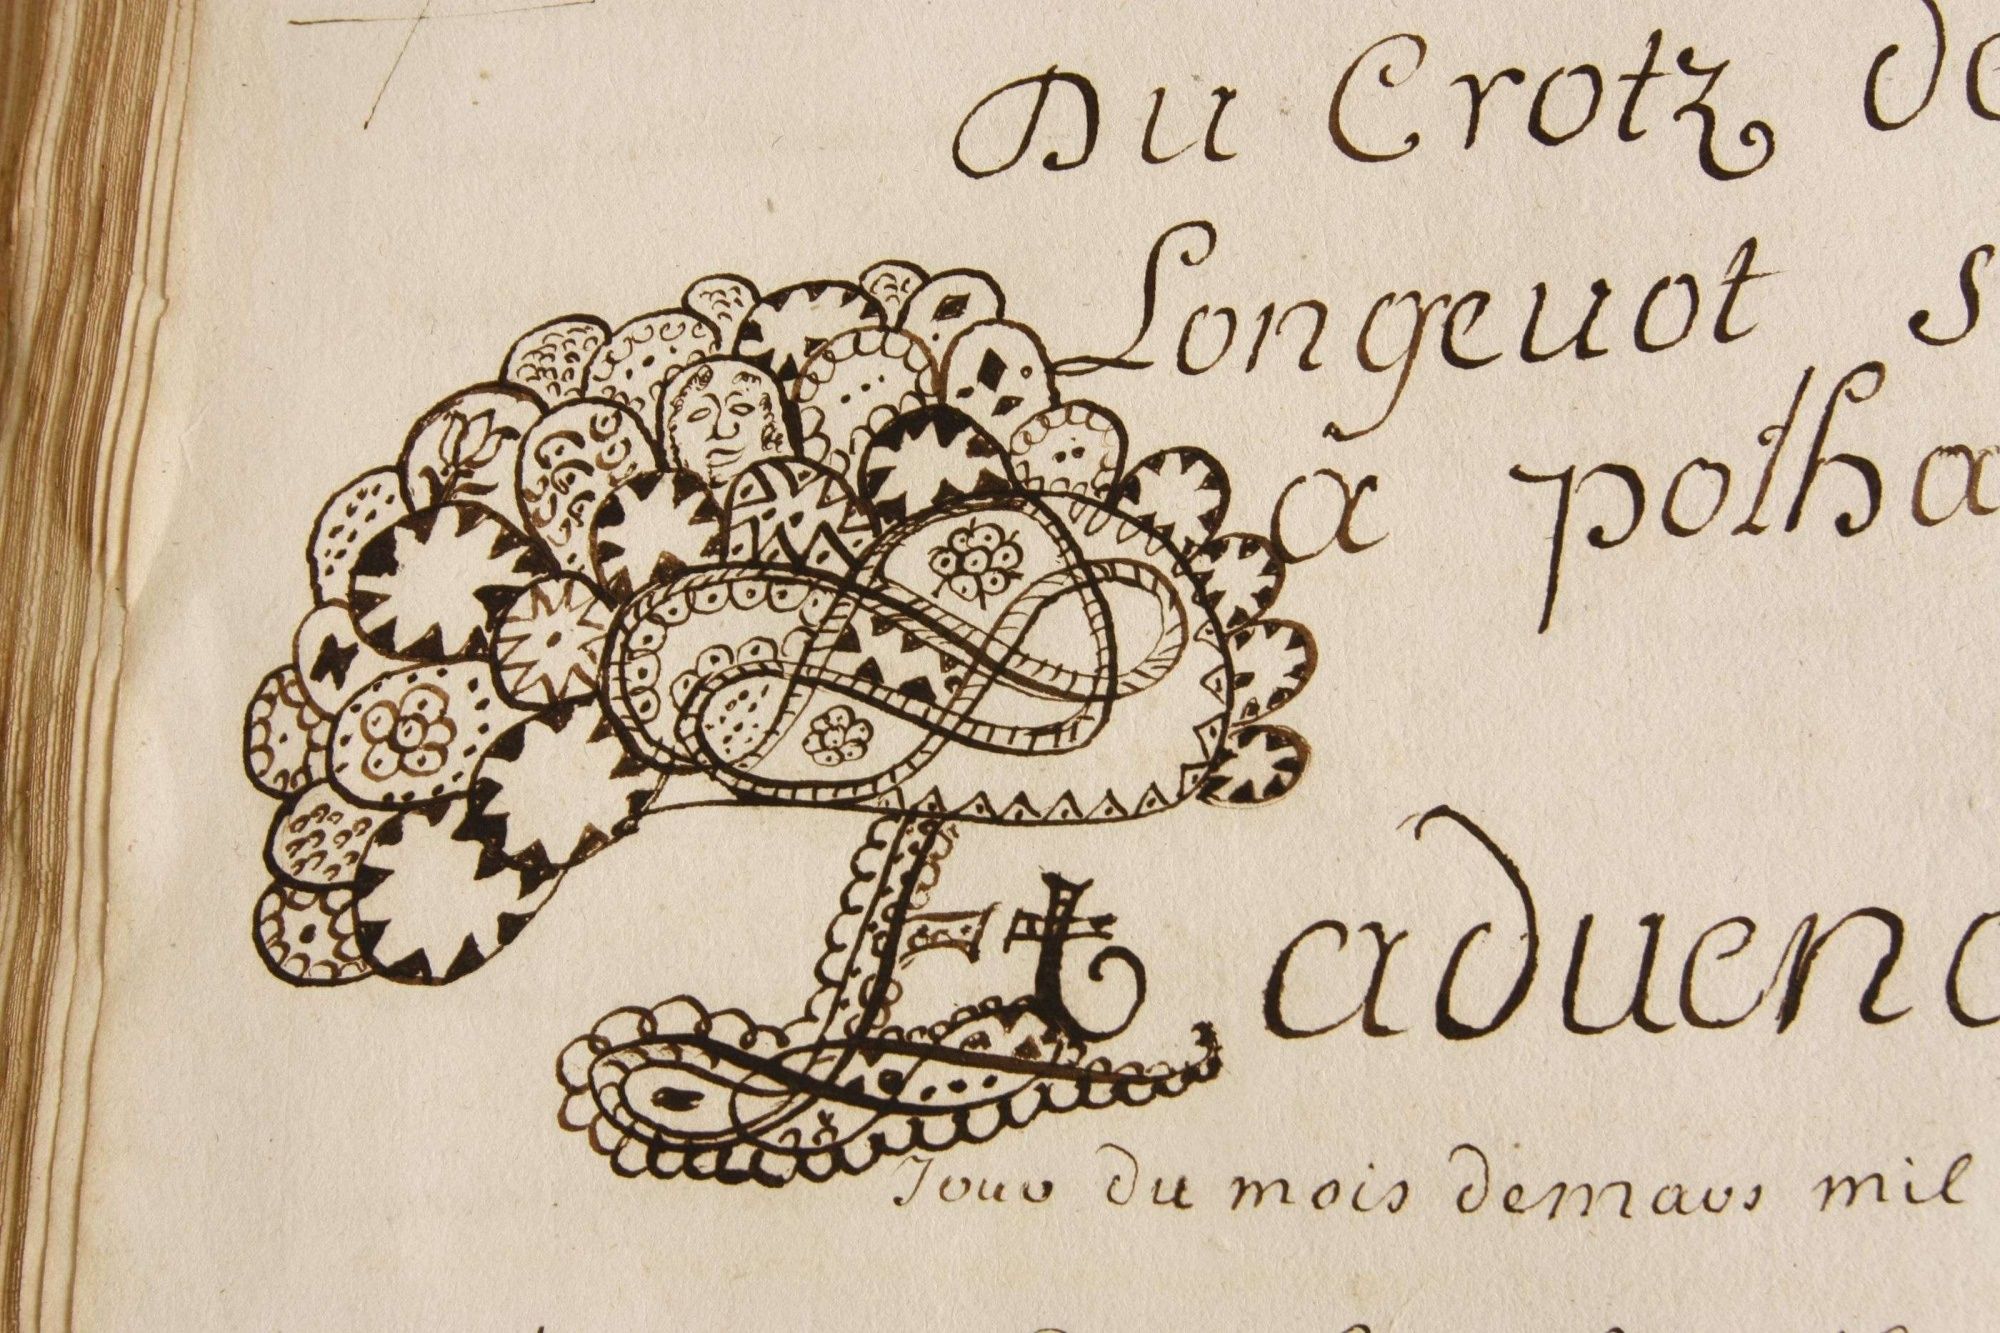 Du Crotz de
Longeuot s
à potha
Et aduena
Jour du mois demars mil